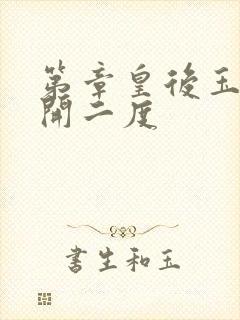 第章皇後玉
開二度
書生和玉